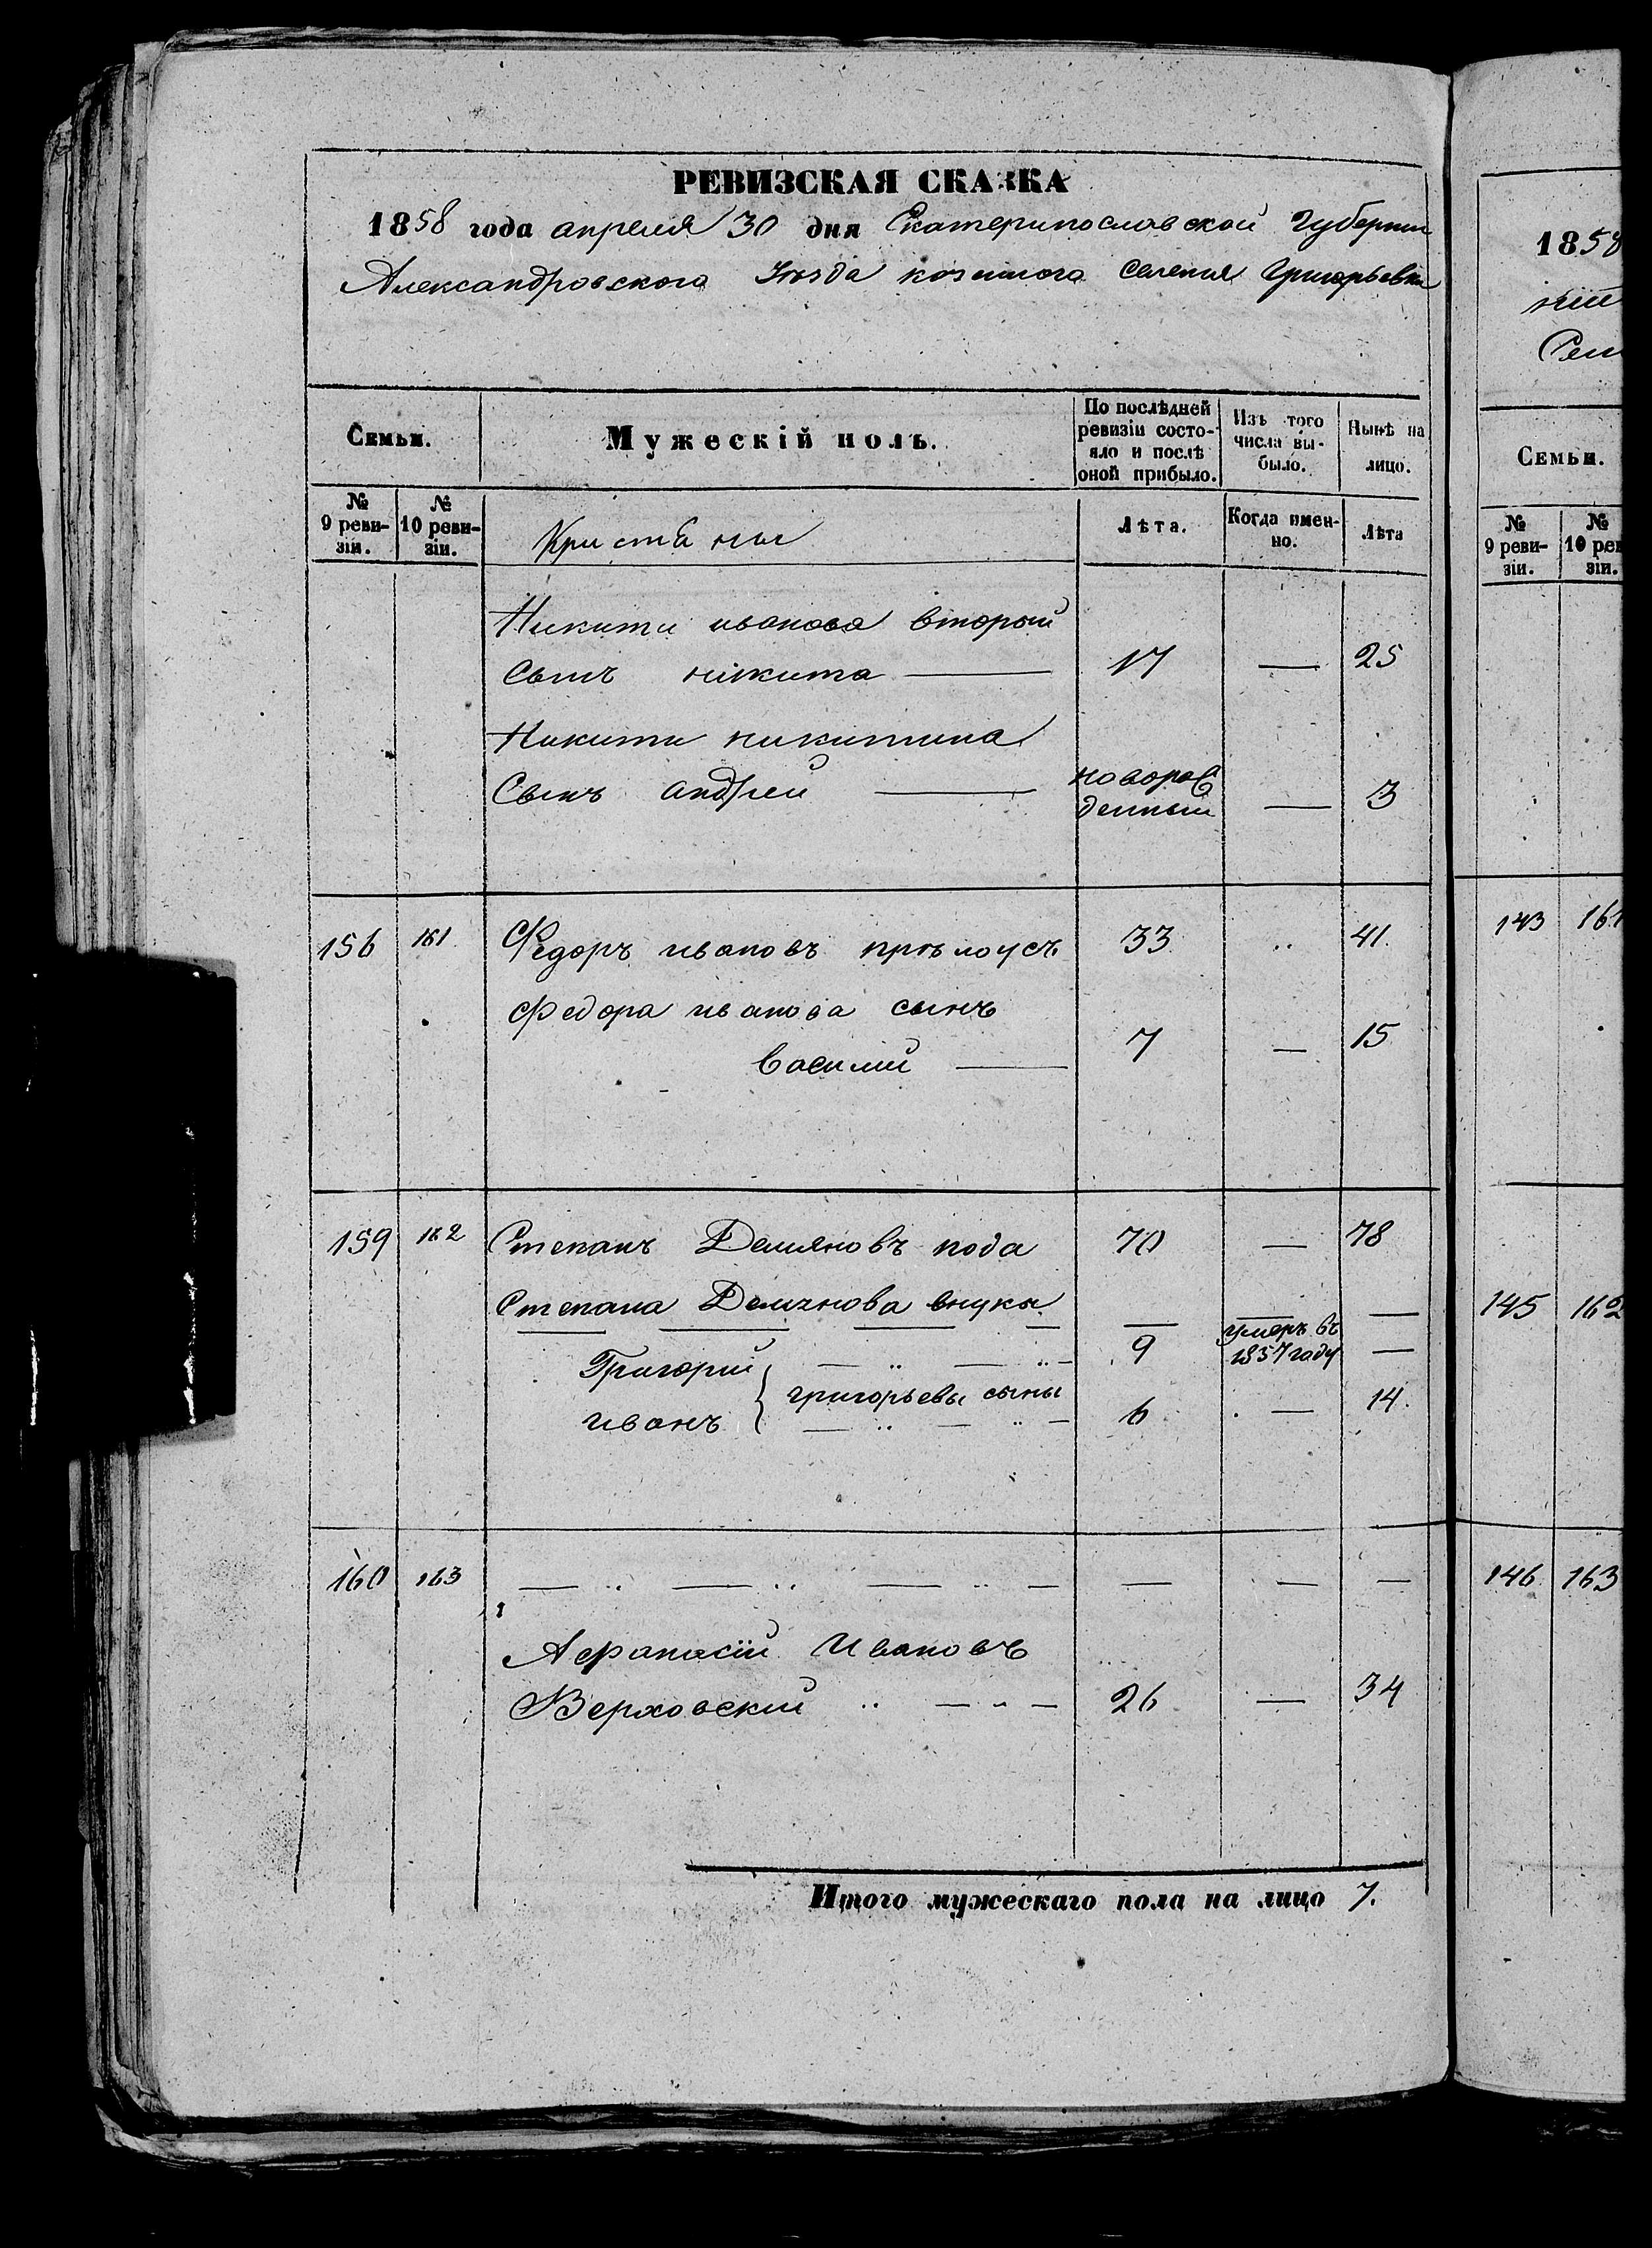 РЕВИЗСКАЯ СКАЗКА
1858 года апреля 30 дня Екатеринославской Губернии
Александровского Уѣзда казенного Селения Григорьевки
Семьи.
Мужескій полъ.
По послѣдней ревизіи состо-
яло и послѣ
оной прибыло.
Изъ того
числа вы-
было.
Нынѣ на
лицо.
№
9 реви-
зіи.
№
10 реви-
зіи.
Лѣта.
Когда имен-
но.
Лѣта
Никити иванова второй
Сынъ никита — 17 — 25
Никити никитина
Сынъ андрей — новорож
денный — 3
156 161 Федоръ ивановъ 33 .. 41.
Федора иванова сынъ
василий — 7 — 15
159 162 Степанъ Демяновъ кода 70 — 78
Степана Демянова внуки — — —
Григорий 9 умеръ въ
1857 году —
григорьевы сыны
иванъ 6 — 14.
160 163 — — —
Афонасій Ивановъ
Верховский 26 — 34
Итого мужескаго пола на лицо 7.
1858
Семьи.
№
9 реви-
зіи.
№
10 реви
зіи.
143 161
145 162
146 163